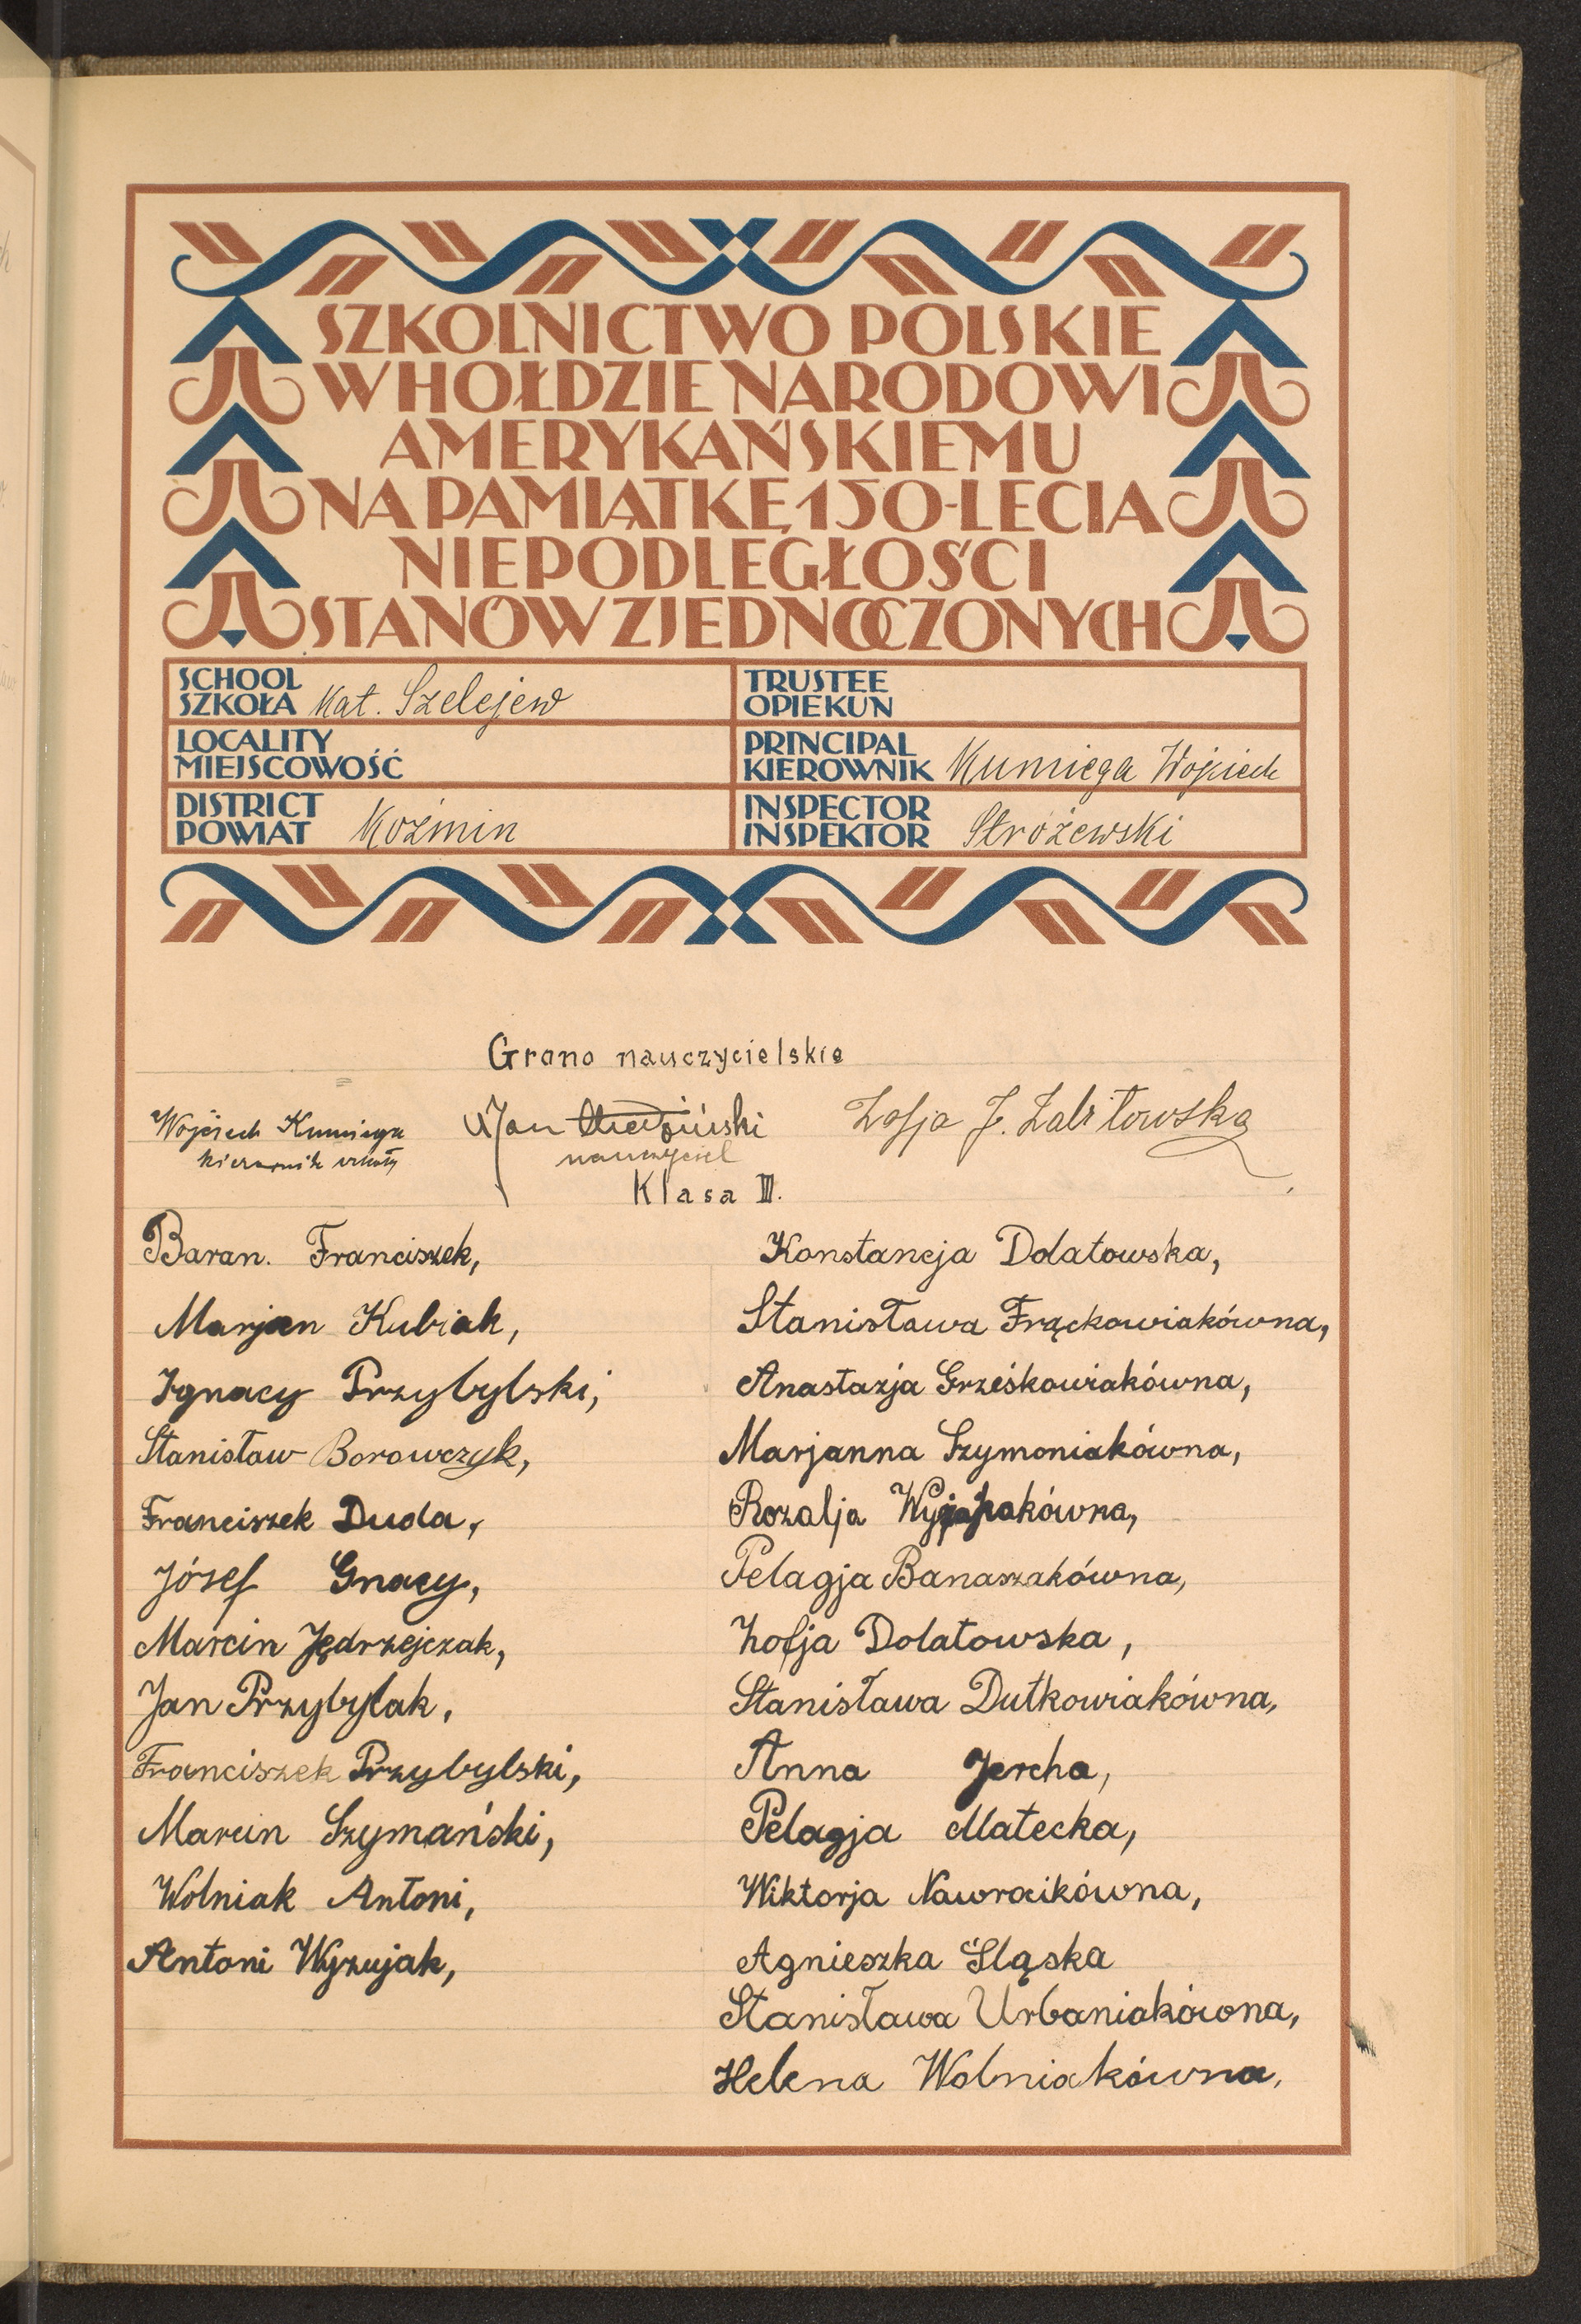 SZKOLNICTWO POLSKIE
W HOŁDZIE NARODOWI
AMERYKAŃSKIEMU
NA PAMIĄTKĘ 150-LECIA
NIEPODLEGŁOŚCI
STANÓW ZJEDNOCZONYCH
SCHOOL
SZKOŁA Kat. Szelejew
TRUSTEE
OPIEKUN
LOCALITY
MIEJSCOWOŚĆ
PRINCIPAL
KIEROWNIK Kumięga Wojciech
DISTRICT
POWIAT Koźmin
INSPECTOR
INSPEKTOR Stróżewski
Grono nauczycielskie
Wojciech Kumięga
kierownik szkoły
Jan
nauczyciel
Zofja J.
Klasa III.
Baran. Franciszek,
Marjan Kubiak,
Ignacy Przybylski,
Stanisław Borowczyk,
Franciszek Duda,
Józef Gnacy,
Marcin Jędrzejczak,
Jan Przybylak,
Franciszek Przybylski,
Marcin Szymański,
Wolniak Antoni,
Antoni Wyzujak,
Konstancja Dolatowska,
Stanisława Frąckowiakówna,
Anastazja Grześkowiakówna,
Marjanna Szymoniakówna,
Rozalja
Pelagja Banaszakówna,
Zofja Dolatowska,
Stanisława Dutkowiakówna,
Anna Jercha,
Pelagja Matecka,
Wiktorja Nawrocikówna,
Agnieszka Śląska
Stanisława Urbaniakówna,
Helena Wolniakówna,